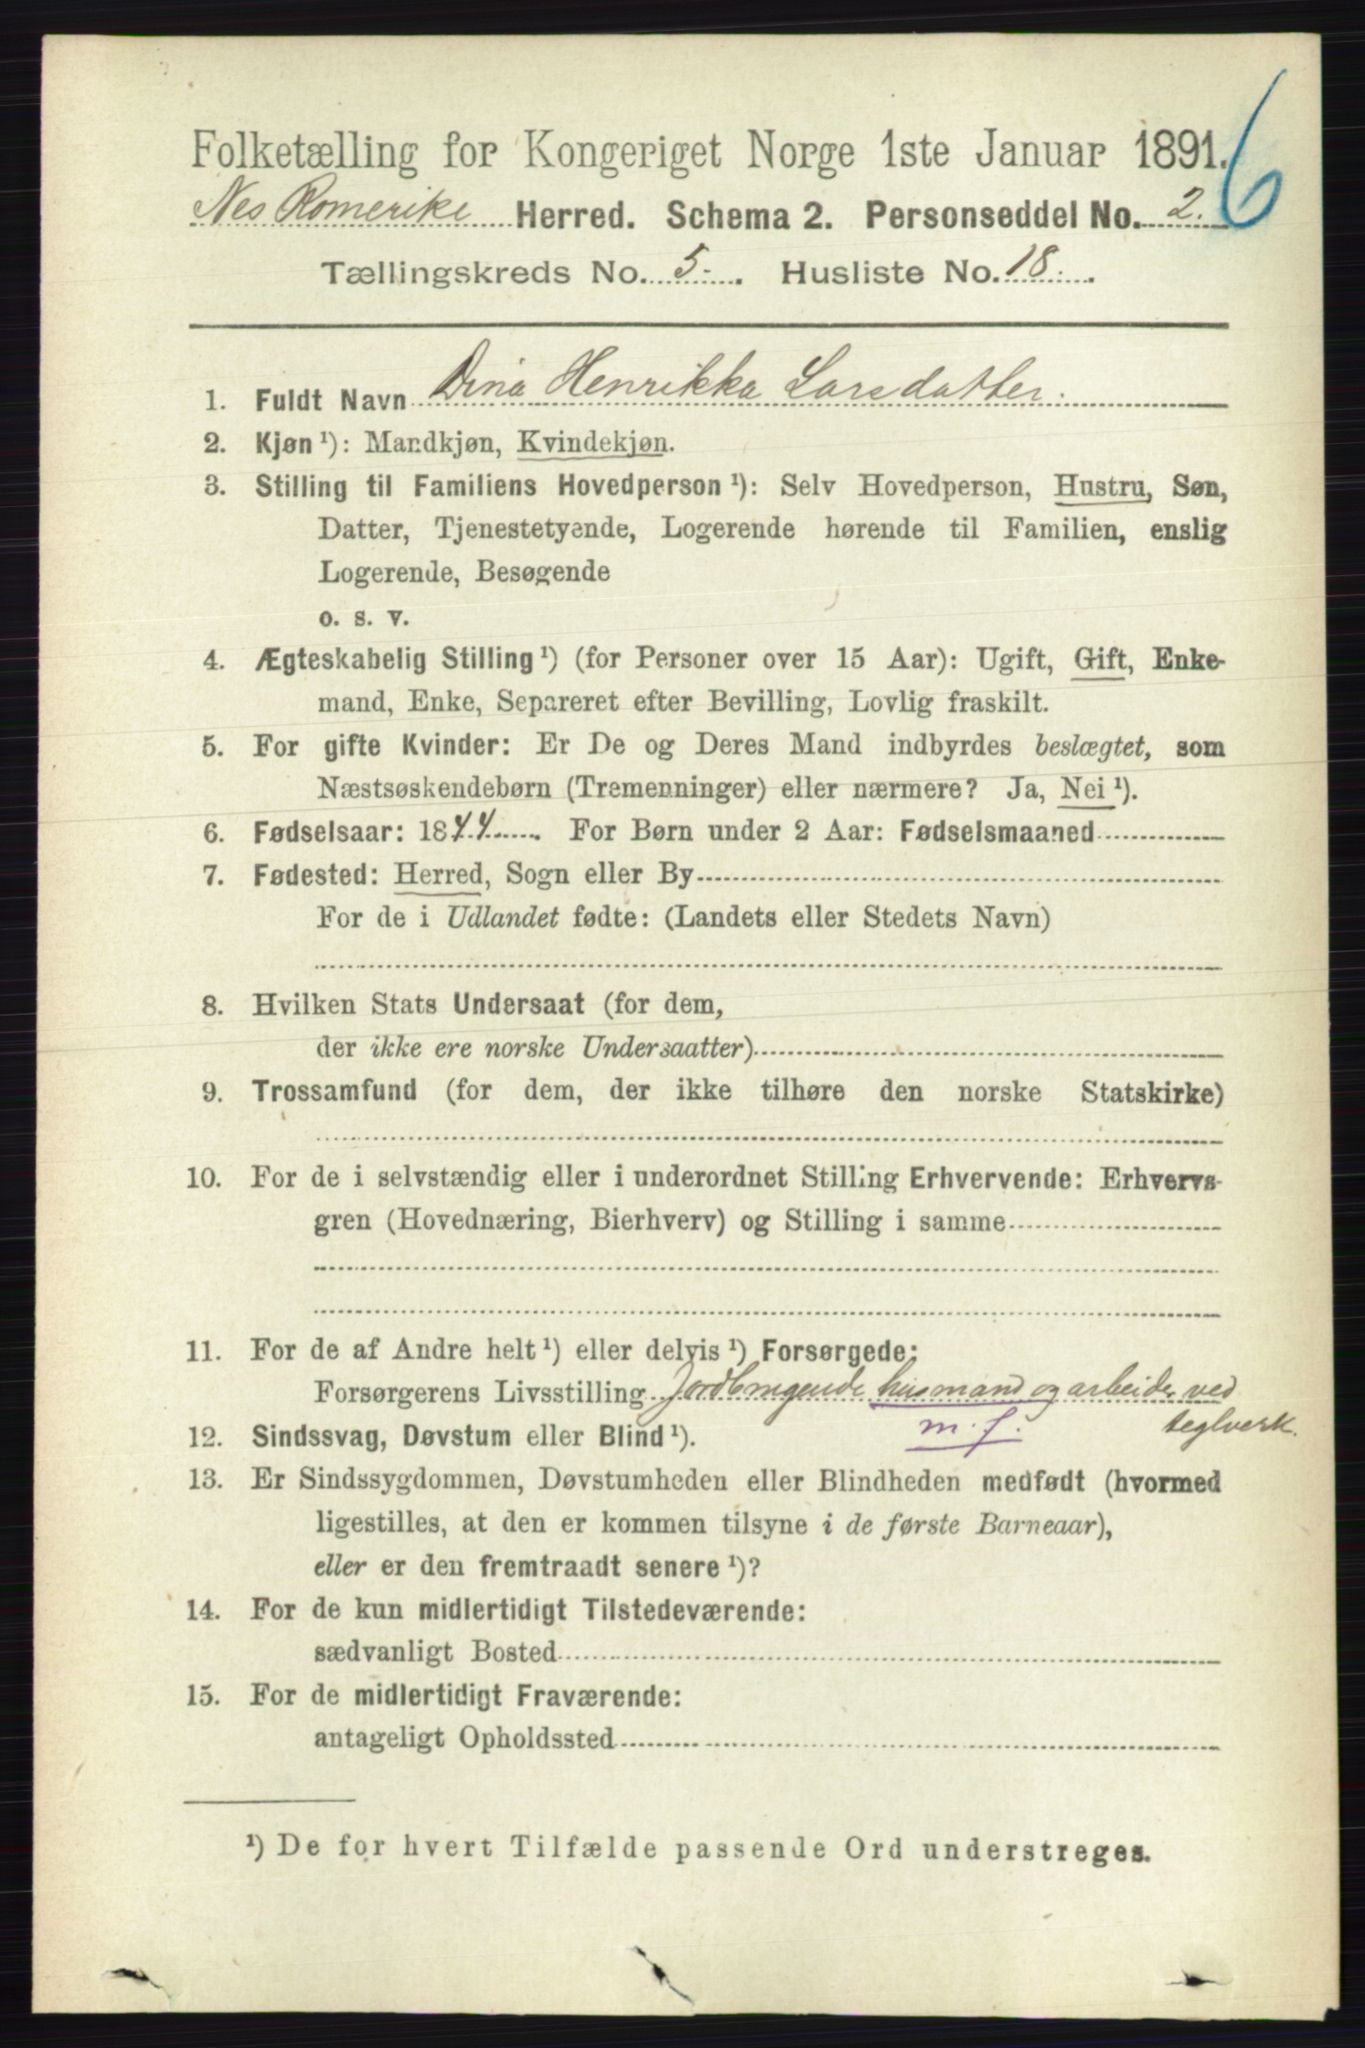 6
Folketælling for Kongeriget Norge 1ste Januar 1891.
Nes Romerike Herred. Schema 2. Personseddel No. 2.
Tællingskreds No. 5. Husliste No. 18.
1. Fuldt Navn Dina Henrikka Larsdatter.
2. Kjøn ¹): Mandkjøn, Kvindekjøn.
3. Stilling til Familiens Hovedperson ¹): Selv Hovedperson, Hustru, Søn,
Datter, Tjenestetyende, Logerende hørende til Familien, enslig
Logerende, Besøgende
o. s. v.
4. Ægteskabelig Stilling ¹) (for Personer over 15 Aar): Ugift, Gift, Enke-
mand, Enke, Separeret efter Bevilling, Lovlig fraskilt.
5. For gifte Kvinder: Er De og Deres Mand indbyrdes beslægtet, som
Næstsøskendebørn (Tremenninger) eller nærmere? Ja, Nei ¹).
6. Fødselsaar: 1844. For Børn under 2 Aar: Fødselsmaaned
7. Fødested: Herred, Sogn eller By
For de i Udlandet fødte: (Landets eller Stedets Navn)
8. Hvilken Stats Undersaat (for dem,
der ikke ere norske Undersaatter)
9. Trossamfund (for dem, der ikke tilhøre den norske Statskirke)
10. For de i selvstændig eller i underordnet Stilling Erhvervende: Erhvervs-
gren (Hovednæring, Bierhverv) og Stilling i samme
11. For de af Andre helt ¹) eller delvis ¹) Forsørgede:
Forsørgerens Livsstilling Jordbrugende husmand og arbeider ved
teglverk.
m. f.
12. Sindssvag, Døvstum eller Blind ¹).
13. Er Sindssygdommen, Døvstumheden eller Blindheden medfødt (hvormed
ligestilles, at den er kommen tilsyne i de første Barneaar),
eller er den fremtraadt senere ¹)?
14. For de kun midlertidigt Tilstedeværende:
sædvanligt Bosted
15. For de midlertidigt Fraværende:
antageligt Opholdssted
¹) De for hvert Tilfælde passende Ord understreges.